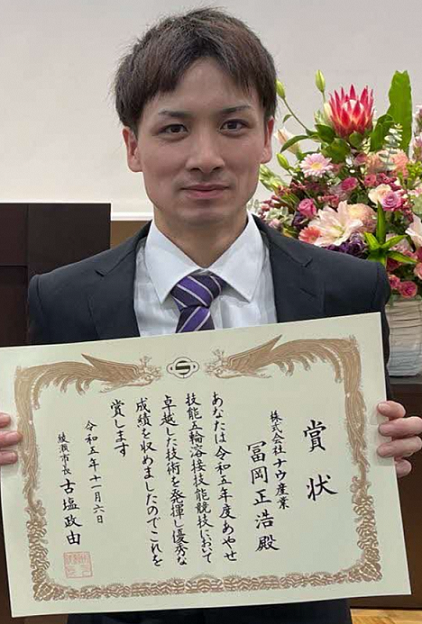 賞状
株式会社ナウ産業
冨岡正浩殿
あなたは令和五年度あやせ
技能五輪溶接技能競技において
卓越した技術を発揮し優秀な
成績を収めましたのでこれを
賞します
令和五年十一月六日
綾瀬市長 古塩政由